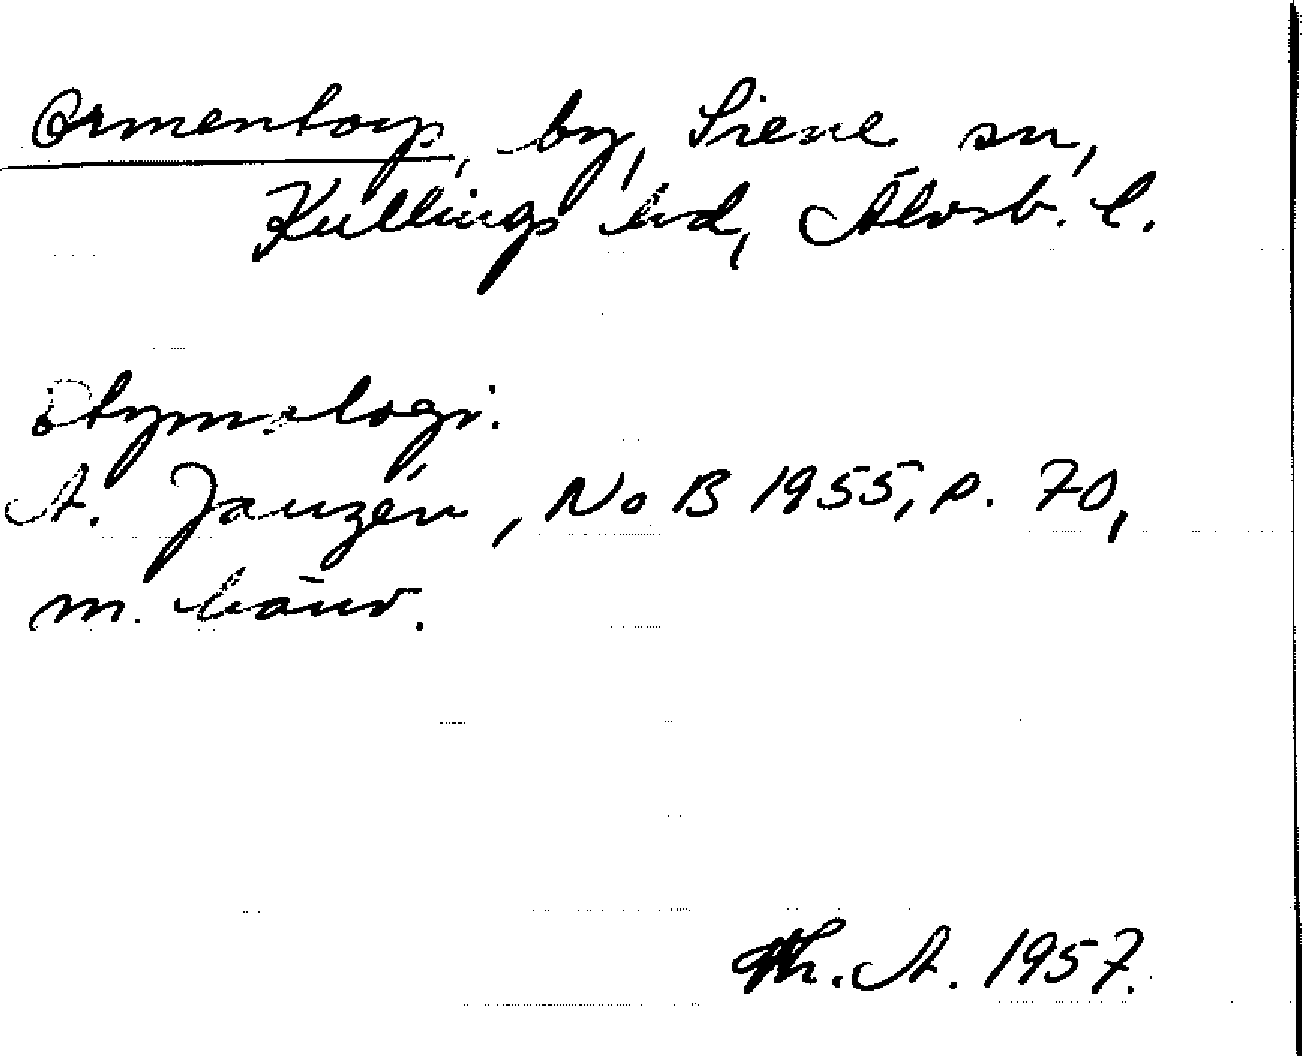 Ormentorp, by, Siene sn,
Kullings hd, Älvsb. l.
Etymologi.
A. Janzén, NoB 1955, p. 70,
m. hänv.
Th. A. 1957.